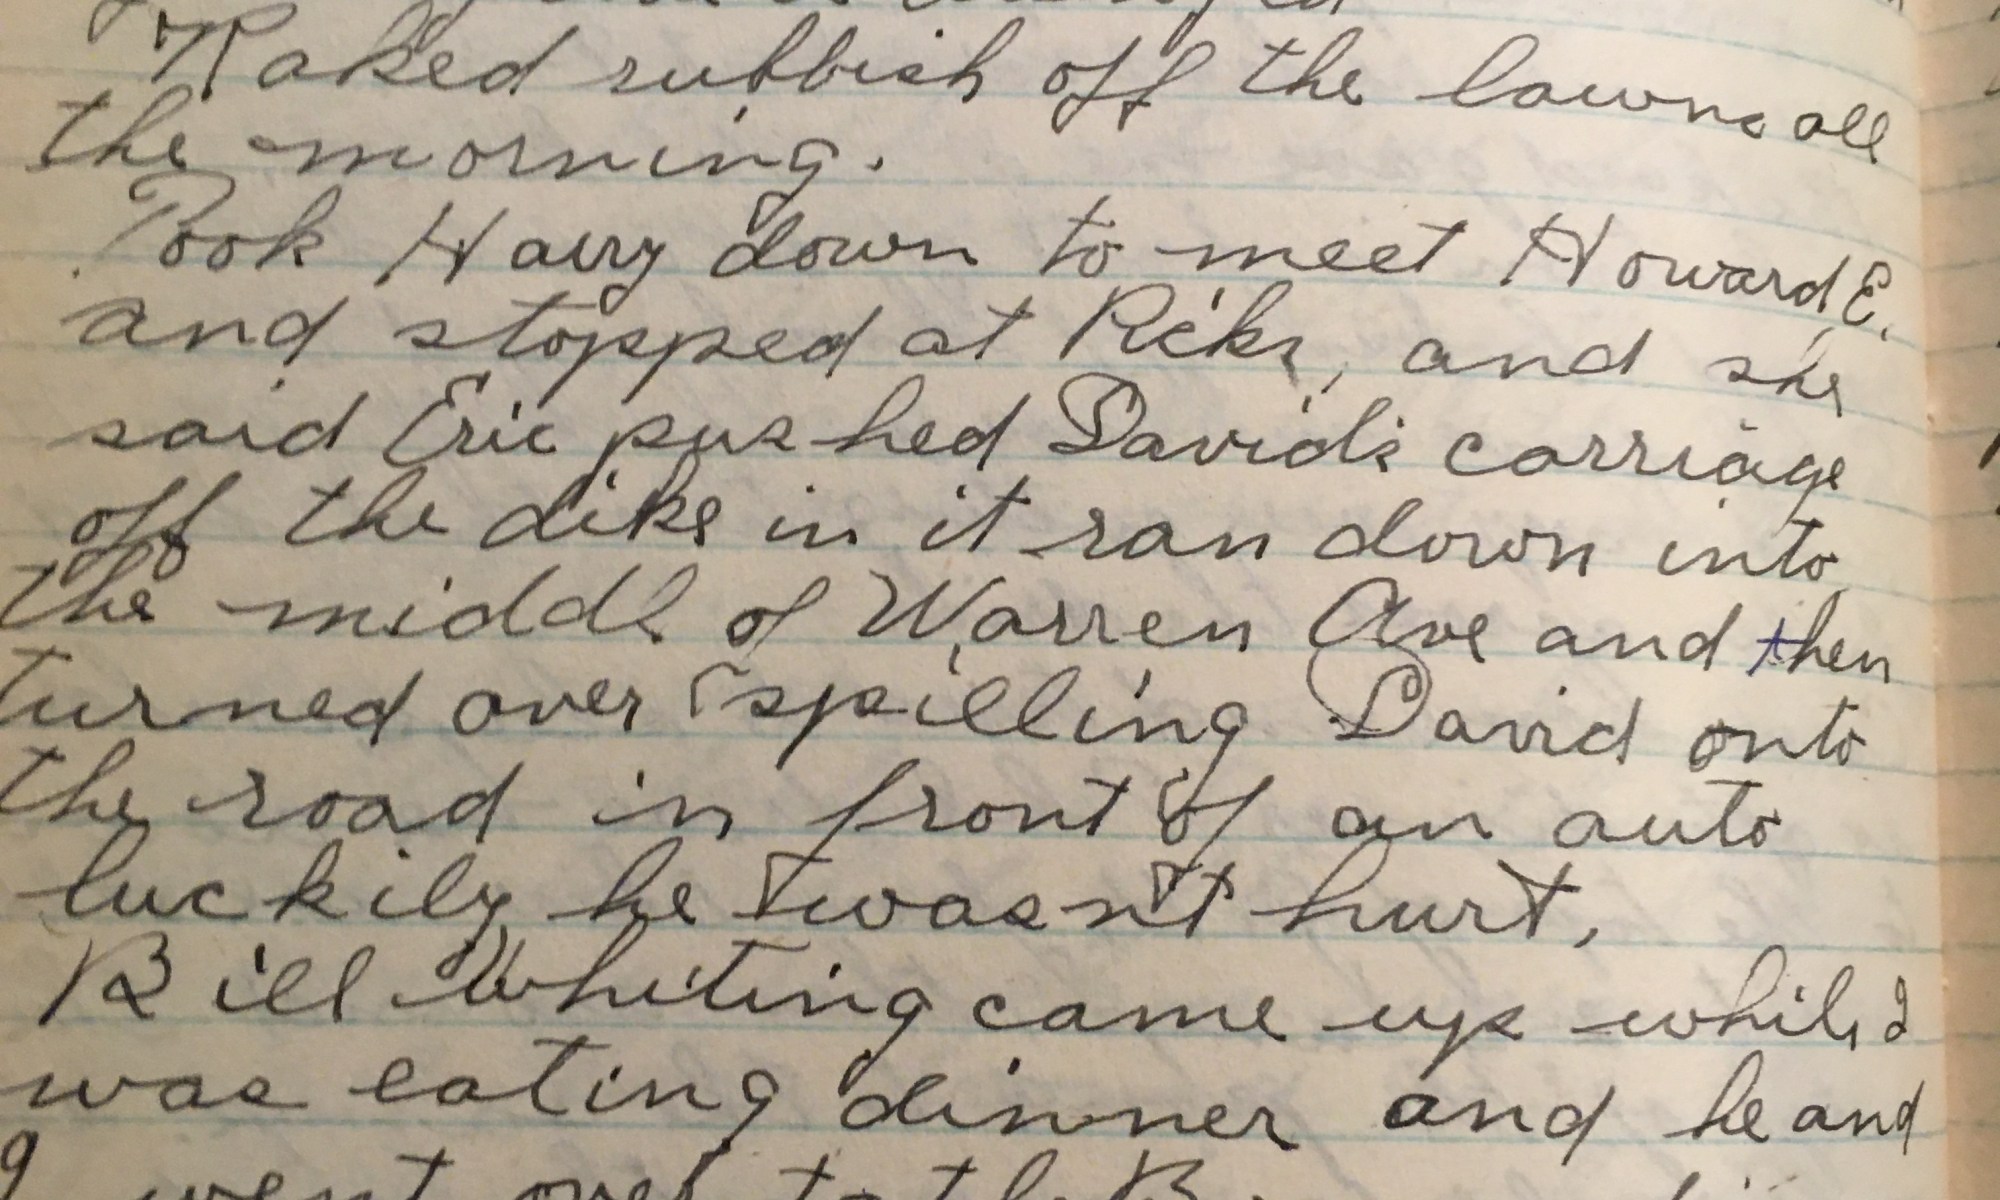 Raked rubbish off the lawns all
the morning.
Took Harry down to meet Howard E.
and stopped at Ricks, and she
said Eric pushed David's carriage
off the dike in it ran down into
the middle of Warren Ave and then
turned over spilling David onto
the road in front of an auto
luckily he wasn't hurt,
Bill Whiting came up while I
was eating dinner and he and
I went over to the